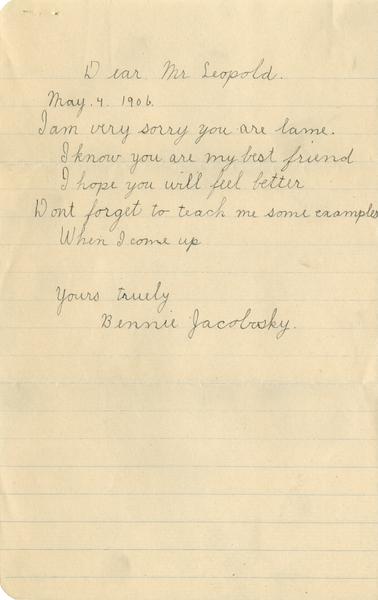 Dear Mr Leopold.
May. 4. 1906.
I am very sorry you are lame.
I know you are my best friend
I hope you will feel better
Dont forget to teach me some examples
When I come up
Yours truely
Bennie Jacobosky.